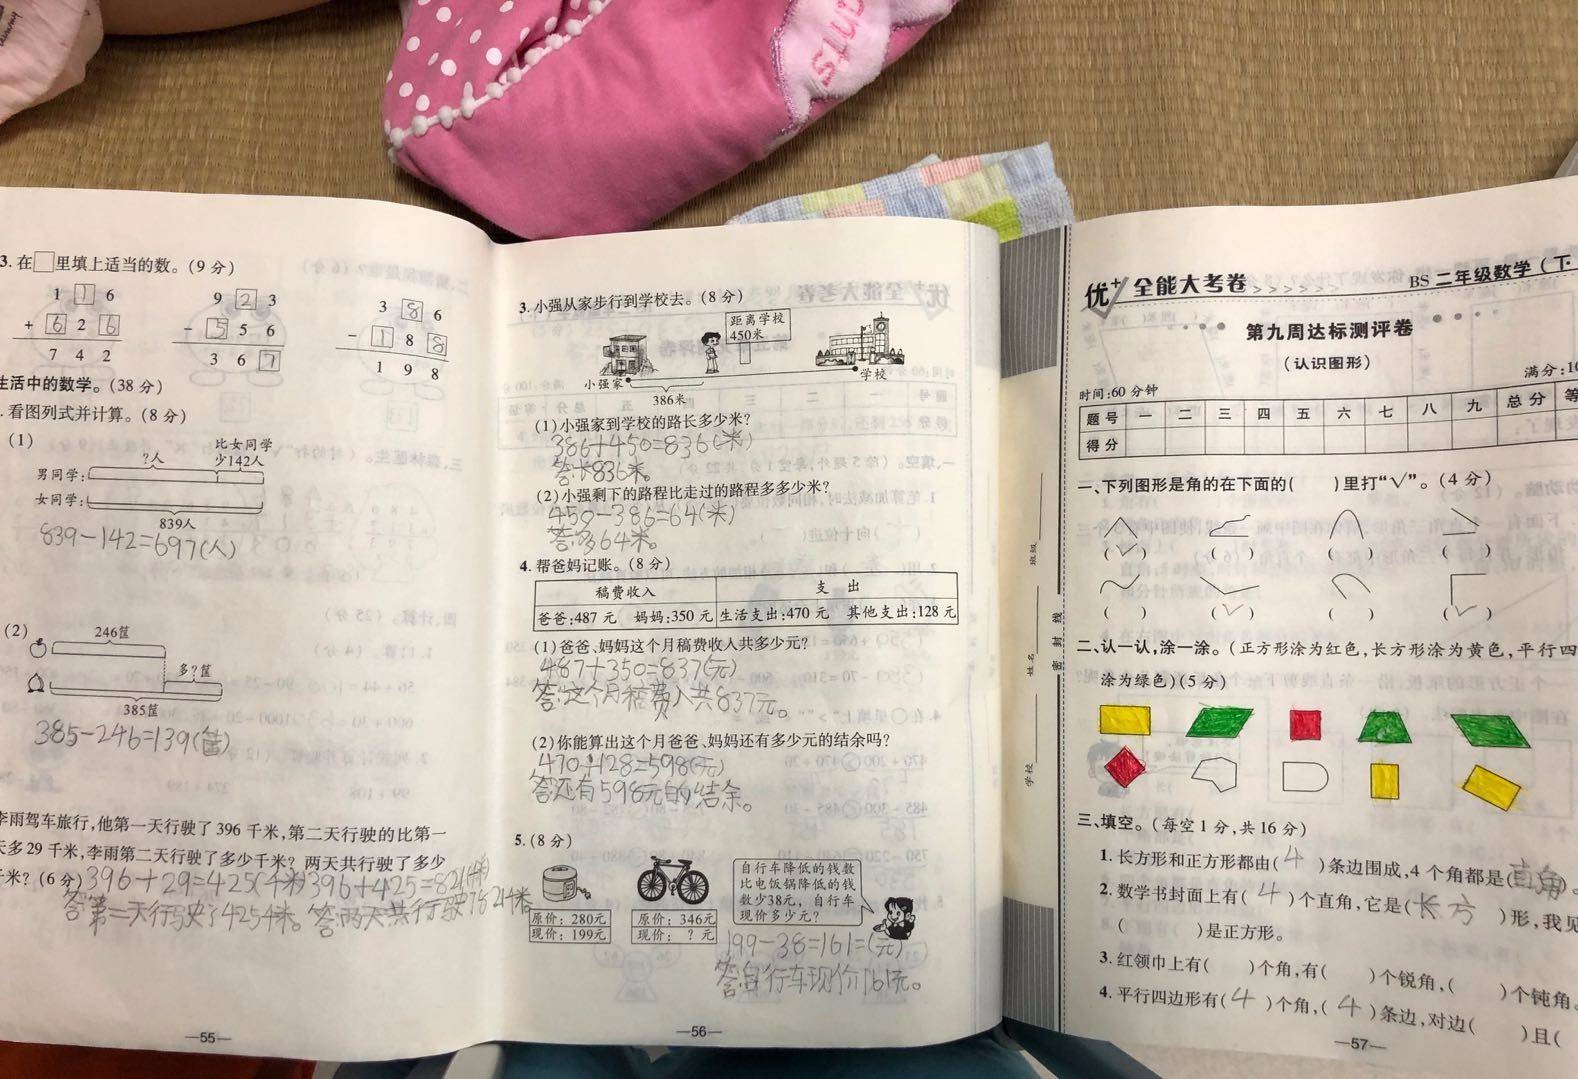 3.在□里填上适当的数。(9分)
1 1 6
+ 6 2 6
7 4 2
9 2 3
- 5 5 6
3 6 7
3 8 6
- 1 8 8
1 9 8
生活中的数学。(38分)
.看图列式并计算。(8分)
(1)
比女同学
?人 少142人
男同学:
女同学:
839人
839-142=697(人)
(2)
246筐
多?筐
385筐
385-246=139(筐)
李雨驾车旅行,他第一天行驶了396千米,第二天行驶的比第一
天多29千米,李雨第二天行驶了多少千米？两天共行驶了多少
千米？(6分) 396+29=425(千米) 396+425=821(千米)
答:第二天行驶了425千米。答:两天共行驶了821千米
—55—
3.小强从家步行到学校去。(8分)
距离学校
450米
小强家
学校
386米
(1)小强家到学校的路长多少米?
386+450=836(米)
答:长836米。
(2)小强剩下的路程比走过的路程多多少米?
450-386=64(米)
答:多64米。
4.帮爸妈记账。(8分)
稿费收入 支出
爸爸:487元 妈妈:350元 生活支出:470元 其他支出:128元
(1)爸爸、妈妈这个月稿费收入共多少元?
487+350=837(元)
答:这个月稿费入共837元。
(2)你能算出这个月爸爸、妈妈还有多少元的结余吗?
470+128=598(元)
答:还有598元的结余。
5.(8分)
原价:280元
现价:199元
原价:346元
现价:?元
自行车降低的钱数
比电饭锅降低的钱
数少38元,自行车
现价多少元?
199-38=161=(元)
答:自行车现价161元。
—56—
学校
姓名
班级
密封线
优+全能大考卷>>>>>> BS二年级数学(下·
第九周达标测评卷
(认识图形)
时间:60分钟 满分:10
题号 一 二 三 四 五 六 七 八 九 总分 等
得分
一、下列图形是角的在下面的( )里打“√”。(4分)
(√) ( ) ( ) ( )
( ) (√) ( ) (√)
二、认一认,涂一涂。(正方形涂为红色,长方形涂为黄色,平行四
涂为绿色)(5分)
三、填空。(每空1分,共16分)
1.长方形和正方形都由(4)条边围成,4个角都是(直角)。
2.数学书封面上有(4)个直角,它是(长方)形,我见
( )是正方形。
3.红领巾上有( )个角,有( )个锐角,( )个钝角。
4.平行四边形有(4)个角,(4)条边,对边( )且(
—57—